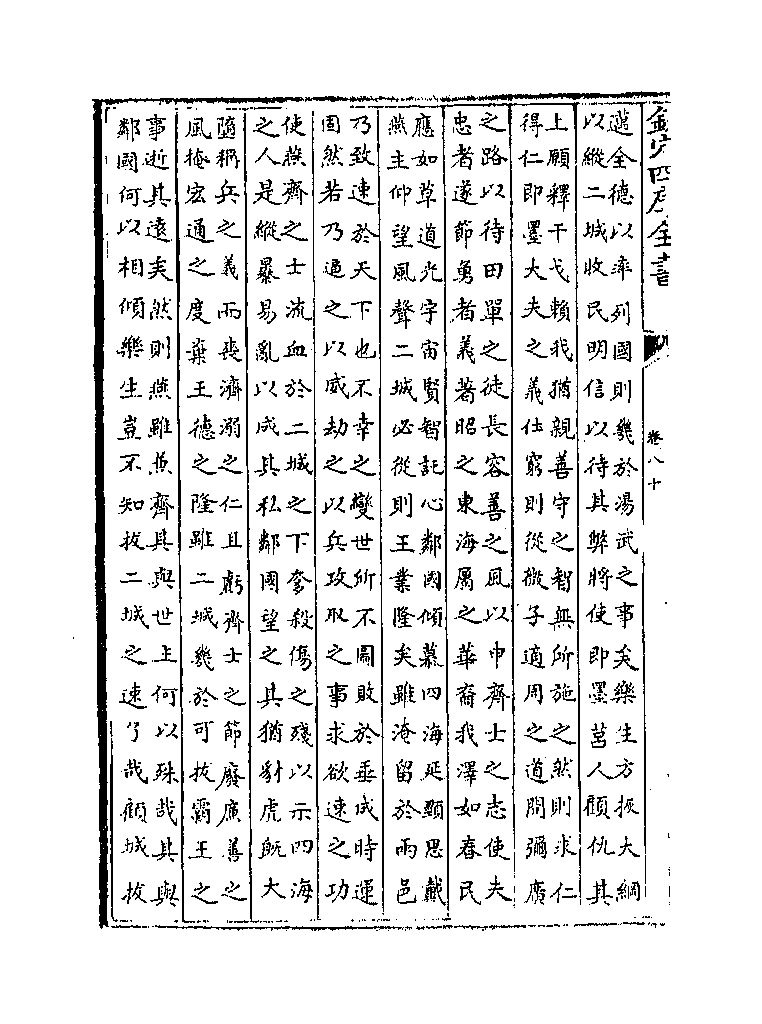 欽定四庫全書
卷八十
邁全德以率列國則幾於湯武之事矣樂生方恢大綱
以縱二城收民明信以待其弊將使即墨莒人顧仇其
上願釋干戈賴我猶親善守之智無所施之然則求仁
得仁即墨大夫之義仕窮則從微子適周之道開彌廣
之路以待田單之徒長容善之風以申齊士之志使夫
忠者遂節勇者義著昭之東海屬之華裔我澤如春民
應如草道光宇宙賢智託心鄰國傾慕四海延頸思戴
燕主仰望風聲二城必從則王業隆矣雖淹留於兩邑
乃致速於天下也不幸之變世所不圖敗於垂成時運
固然若乃逼之以威劫之以兵攻取之事求欲速之功
使燕齊之士流血於二城之下奓殺傷之殘以示四海
之人是縱暴易亂以成其私鄰國望之其猶豺虎既大
墮稱兵之義而喪濟溺之仁且虧齊士之節廢廣善之
風掩宏通之度棄王德之隆雖二城幾於可拔霸王之
事逝其遠矣然則燕雖兼齊其與世主何以殊哉其與
鄰國何以相傾樂生豈不知拔二城之速了哉顧城拔